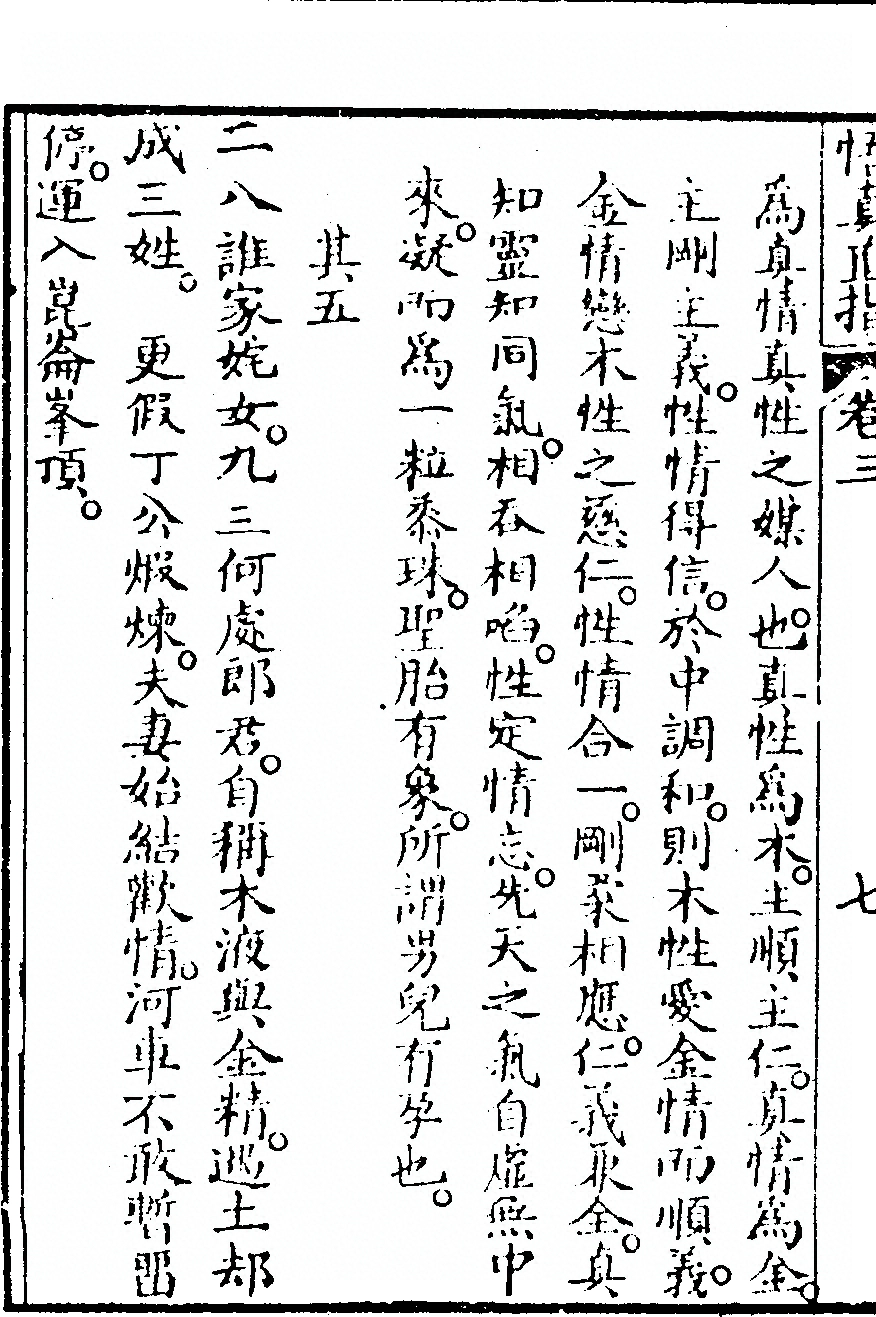 悟真直指　卷三　七
為真情真性之媒人也。真性為木。主順主仁。真情為金。
主剛主義。性情得信。於中調和。則木性愛金情而順義。
金情戀木性之慈仁。性情合一。剛柔相應。仁義兼全。真
知靈知同氣。相吞相啗。性定情忘。先天之氣自虛無中
來。凝而為一粒黍珠。聖胎有象。所謂男兒有孕也。
其五
二八誰家姹女。九三何處郎君。自稱木液與金精。遇土却
成三姓。　更假丁公煅煉。夫妻始結歡情。河車不敢暫畱
停。運入崑崙峯頂。